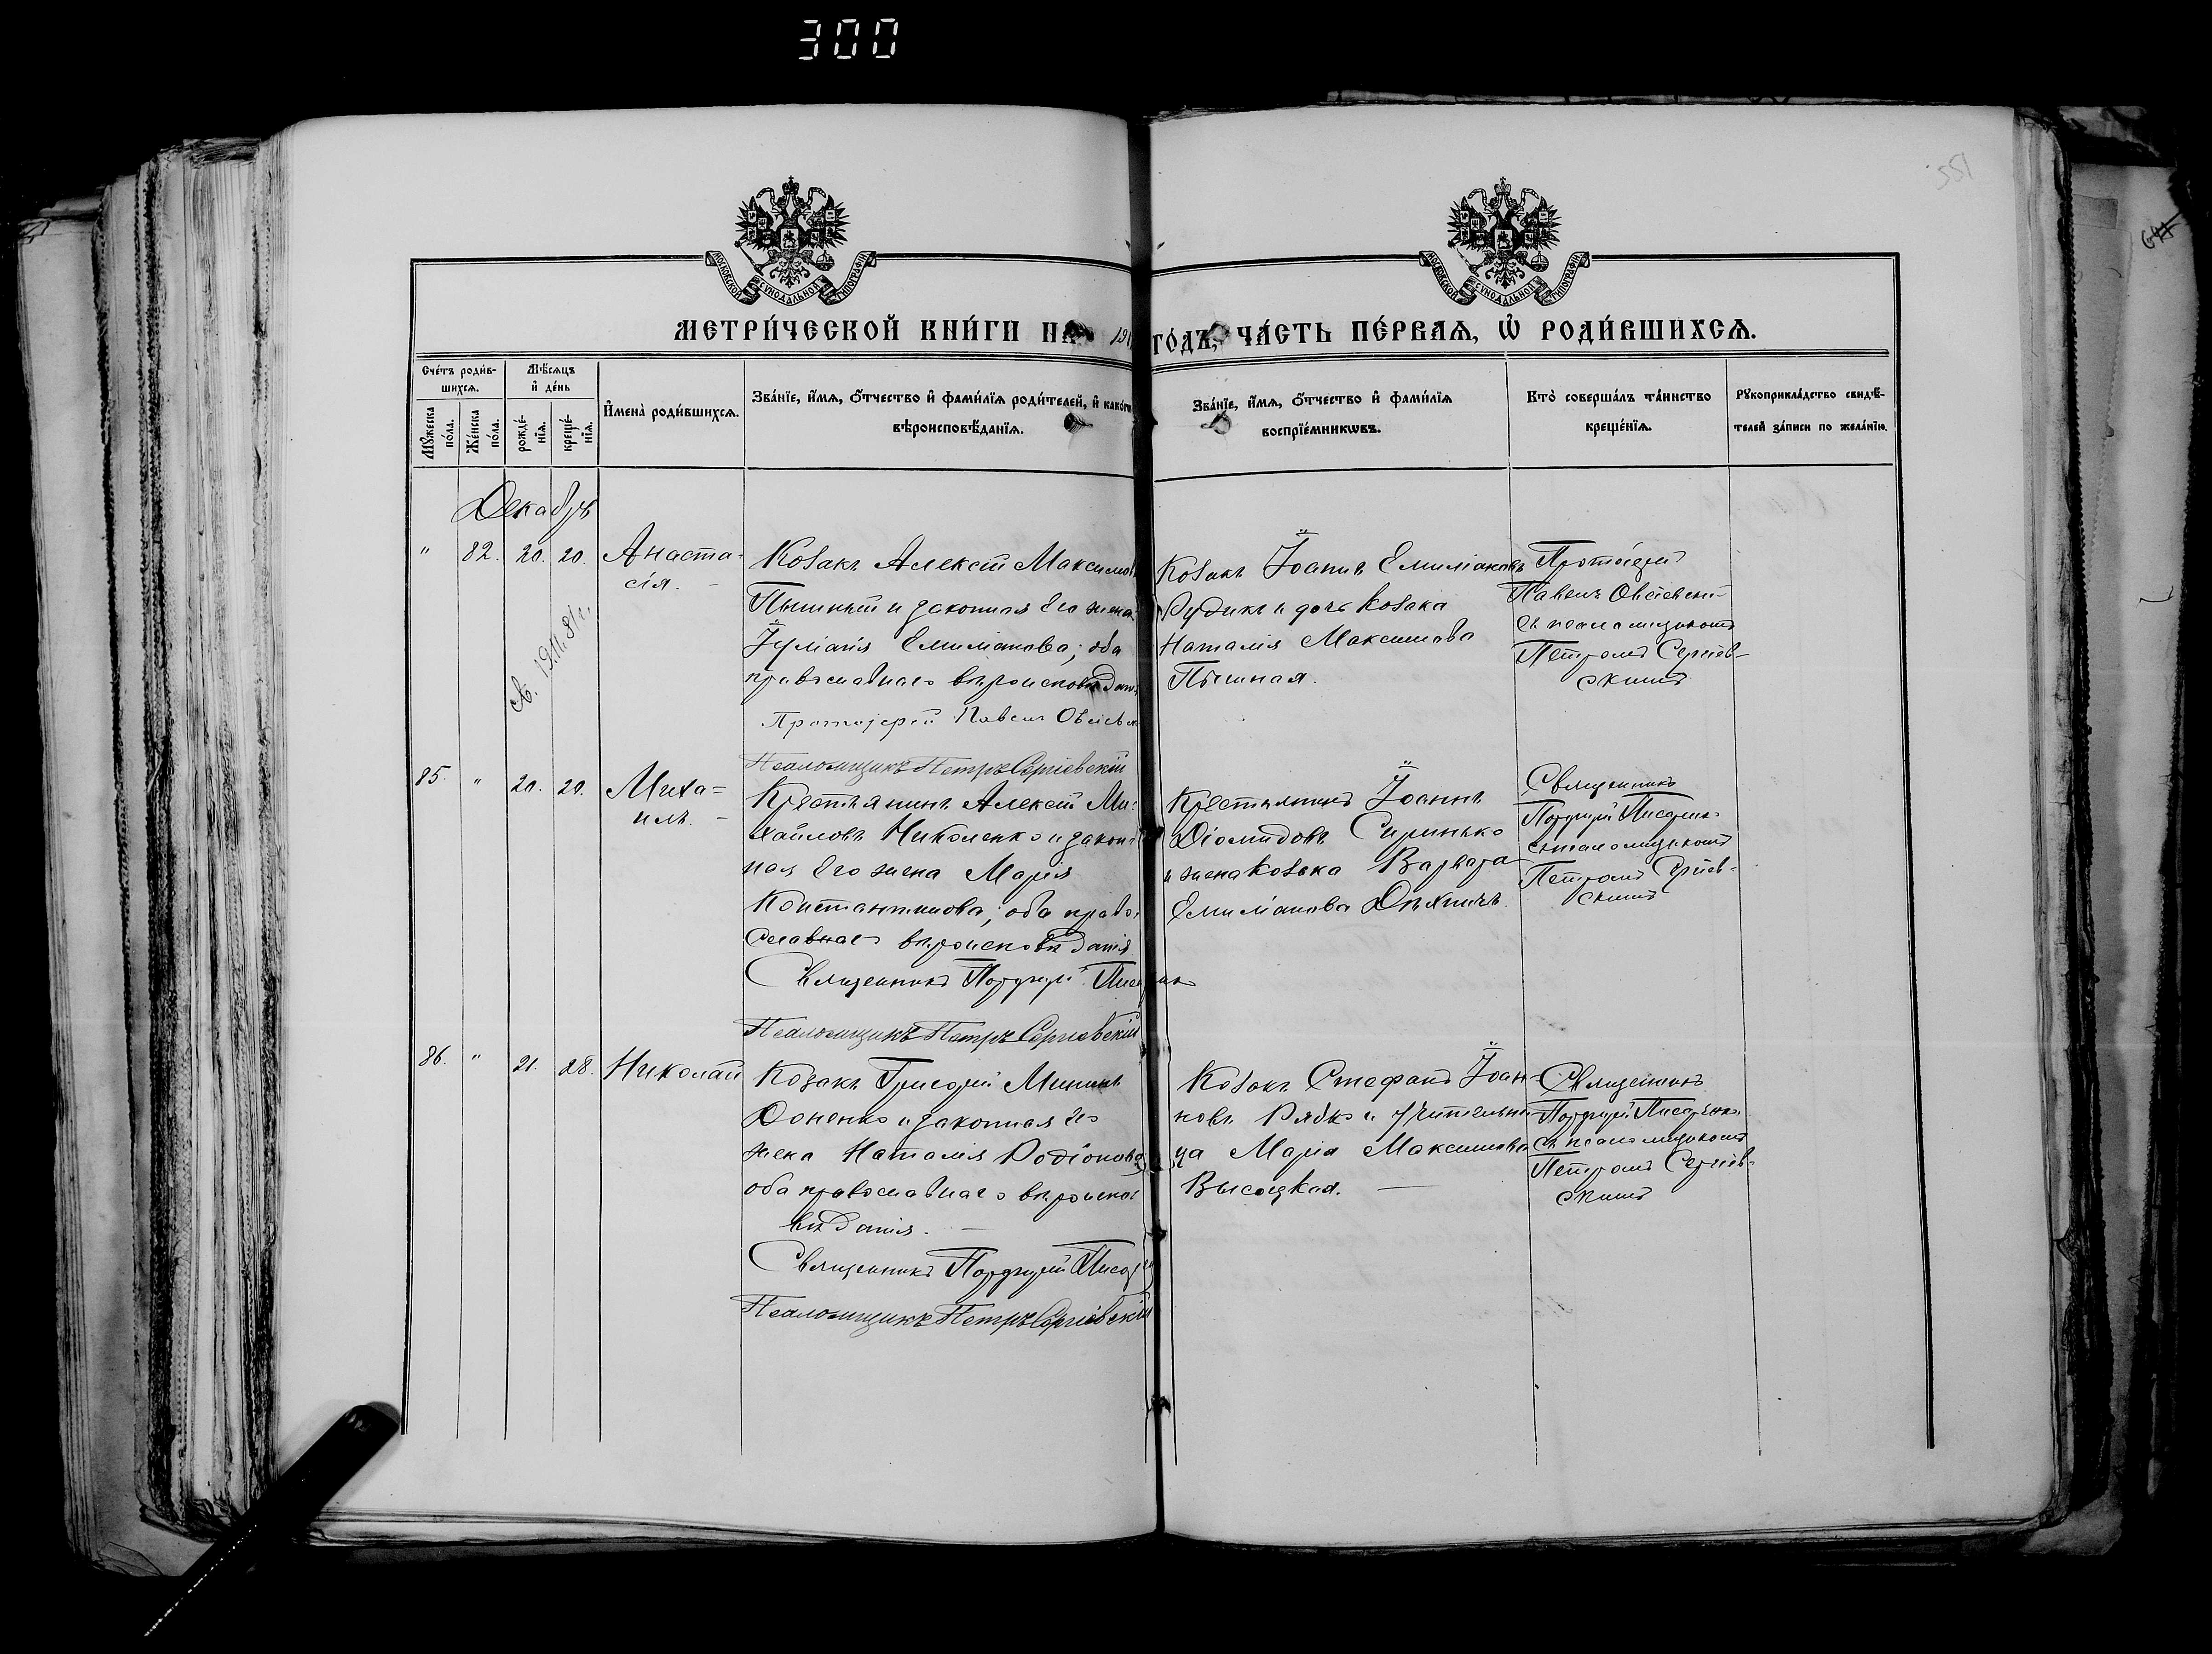 300
551
МОСКОВСКОЙ СѴНОДАЛЬНОЙ ТИПОГРАФІИ
МОСКОВСКОЙ СѴНОДАЛЬНОЙ ТИПОГРАФІИ
МЕТРИ́ЧЕСКОЙ КНИ́ГИ НА 191 ГО́ДЪ, ЧА́СТЬ ПЕ́РВАѦ, Ѡ҆ РОДИ́ВШИХСѦ.
Сче́тъ роди́в-
шихсѧ.
Мꙋ́жеска по́ла.
Же́нска по́ла.
Мѣ́сѧцъ
и҆ де́нь
рожде́-
нїѧ.
креще́-
нїѧ.
И҆мена̀ роди́вшихсѧ.
Зва́нїе, и҆́мѧ, ѻ҆́тчество и҆ фами́лїѧ роди́телей, и҆ како́гѡ
вѣроисповѣ́данїѧ.
Зва́нїе, и҆́мѧ, ѻ҆́тчество и҆ фами́лїѧ
воспрїе́мникѡвъ.
Кто̀ соверша́лъ та́инство
креще́нїѧ.
Рꙋкоприкла́дство свидѣ́-
телей за́писи по жела́нїю.
Декабрь
" 82. 20. 20.
Анаста-
сія. –
Козакъ Алексій Максимовъ
Пышный и законная его жена
Іуліанія Емиліанова; оба
православнаго вѣроисповѣдан.
Протоіерей Павелъ Овсіевск
Псаломщикъ Петръ Сергіевскій
Козакъ Іоаннъ Емиліановъ
Рудикъ и дочь козака
Наталія Максимова
Пышная.
Протоіерей
Павелъ Овсіевскій
съ псаломщикомъ
Петромъ Сергіев-
скимъ
85. " 20. 20.
Миха=
илъ. –
Крестьянинъ Алексій Ми-
хайловъ Николенко и закон-
ная его жена Марія
Константинова; оба право-
славнаго вѣроисповѣданія
Священникъ Порфирій
Псаломщикъ Петръ Сергіевскій
Крестьянинъ Іоаннъ
Діомидовъ Сиринько
и жена козака Варвара
Емиліанова Дѣхтичъ.
Священникъ
Порфирій
съ псаломщикомъ
Петромъ Сергіев-
скимъ
86. " 21. 28.
Николай
Козакъ Григорій Мининъ
Доненко и законная его
жена Наталія Родіонова
оба православнаго вѣроиспо
вѣданія. –
Священникъ Порфирій
Псаломщикъ Петръ Сергіевскій
Козакъ Стефанъ Іоан-
новъ Рябко и учительни-
ца Марія Максимова
Высоцкая. –
Священникъ
Порфирій
съ псаломщикомъ
Петромъ Сергіев-
скимъ